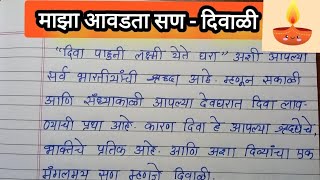 माझा आवडता सण - दिवाळी
"दिवा पाहुनी लक्ष्मी येते घरा" अशी आपल्या
सर्व भारतीयांची श्रध्दा आहे. म्हणून सकाळी
आणि संध्याकाळी आपल्या देवघरात दिवा लाव-
ण्याची प्रथा आहे. कारण दिवा हे आपल्या श्रध्देचे,
भक्तिचे प्रतिक आहे. आणि अशा दिव्यांचा एक
मंगलमय सण म्हणजे दिवाळी.